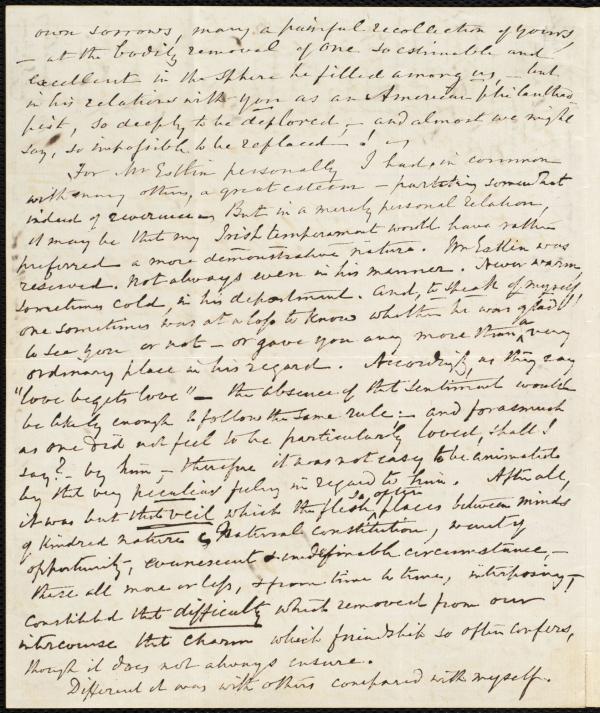 own sorrows, many a painful recollection of yours,
– at the bodily removal of one so estimable and
excellent in the sphere he filled among us, – but
in his relations with you as an American philanthro-
pist, so deeply to be deplored, – and almost we might
say, so impossible to be replaced – !
For Mr Estlin personally I had, in common
with many others, a great esteem – partaking somewhat
indeed of reverence. But in a merely personal relation,
it may be that my Irish temperament would have rather
preferred a more demonstrative nature. Mr Estlin was
reserved. Not always even in his manner. Never warm,
sometimes cold, in his deportment. And, to speak of myself
one sometimes was at a loss to know whether he was glad
to see you or not – or gave you any more than a very
ordinary place in his regard. Accordingly, as they say
"love begets love" – the absence of that sentiment would
be likely enough to follow the same rule: – and forasmuch
as one did not feel to be particularly loved, shall I
say? – by him, – therefore it was not easy to be animated
by that very peculiar feeling in regard to him. After all,
it was but that veil which the flesh so often places between minds
of kindred nature. Natural constitution, want of
opportunity, evanescent & indefinable circumstance, –
these all more or less, & from time to time, interposing, –
constituted that difficulty which removed from our
intercourse that charm which friendship so often confers,
though it does not always ensure.
Different it was with others compared with myself.